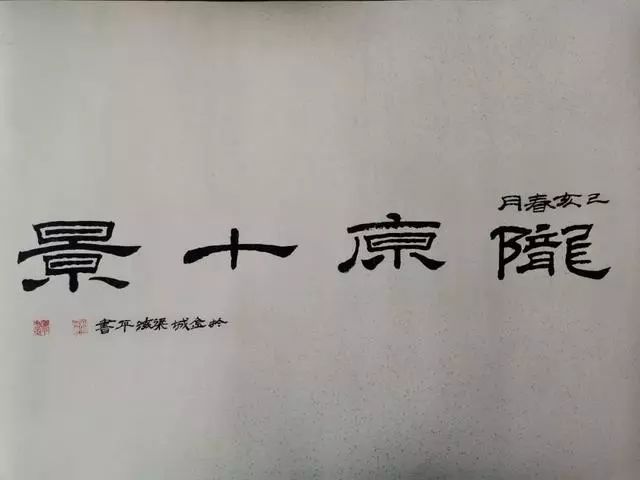 己亥春月
隴原十景
於金城梁平書